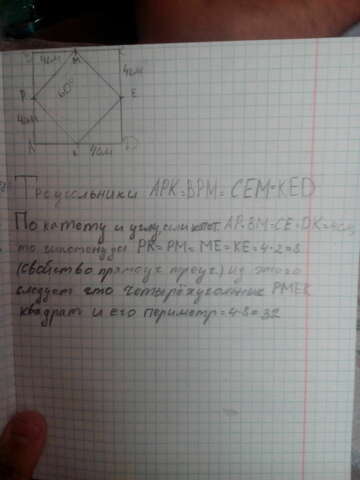 B C
4см M 4см
P 60° E
4см
A K 4см D
Треугольники APK=BPM=CEM=KED
По катету и углу, если катет AP=BM=CE=DK=4см
то гипотенузы PK=PM=ME=KE=4·2=8
(свойство прямоуг треуг.) из этого
следует что четырёхугольник PMEK
квадрат и его периметр=4·8=32